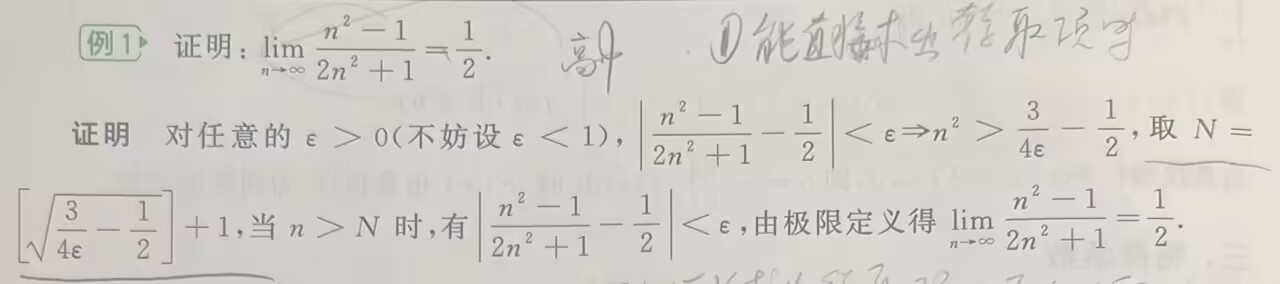 例1 证明：$\lim\limits_{n\to\infty}\frac{n^2-1}{2n^2+1}=\frac{1}{2}$. ①能直接求出
证明 对任意的 ε > 0(不妨设 ε < 1), $\left|\frac{n^2-1}{2n^2+1}-\frac{1}{2}\right|<ε\Rightarrow n^2>\frac{3}{4ε}-\frac{1}{2}$, 取 N =
$\left[\sqrt{\frac{3}{4ε}-\frac{1}{2}}\right]+1$, 当 n > N 时, 有 $\left|\frac{n^2-1}{2n^2+1}-\frac{1}{2}\right|<ε$, 由极限定义得 $\lim\limits_{n\to\infty}\frac{n^2-1}{2n^2+1}=\frac{1}{2}$.